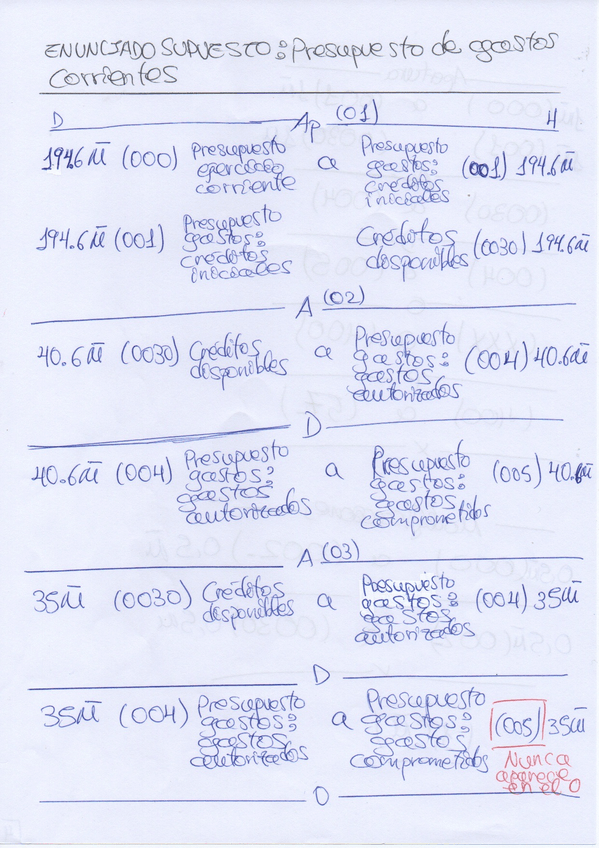 ENUNCIADO SUPUESTO: Presupuesto de gastos
corrientes
D Ap (01) H
194.6M (000) Presupuesto ejercicio corriente a Presupuesto gastos: créditos iniciales (001) 194.6M
194.6M (001) Presupuesto gastos: créditos iniciales Créditos disponibles (0030) 194.6M
A (02)
40.6M (0030) Créditos disponibles a Presupuesto gastos: gastos autorizados (004) 40.6M
D
40.6M (004) Presupuesto gastos: gastos autorizados a Presupuesto gastos: gastos comprometidos (005) 40.6M
A (03)
35M (0030) Créditos disponibles a Presupuesto gastos: gastos autorizados (004) 35M
D
35M (004) Presupuesto gastos: gastos autorizados a Presupuesto gastos: gastos comprometidos (005) 35M
Nunca
aparece
en el O
O